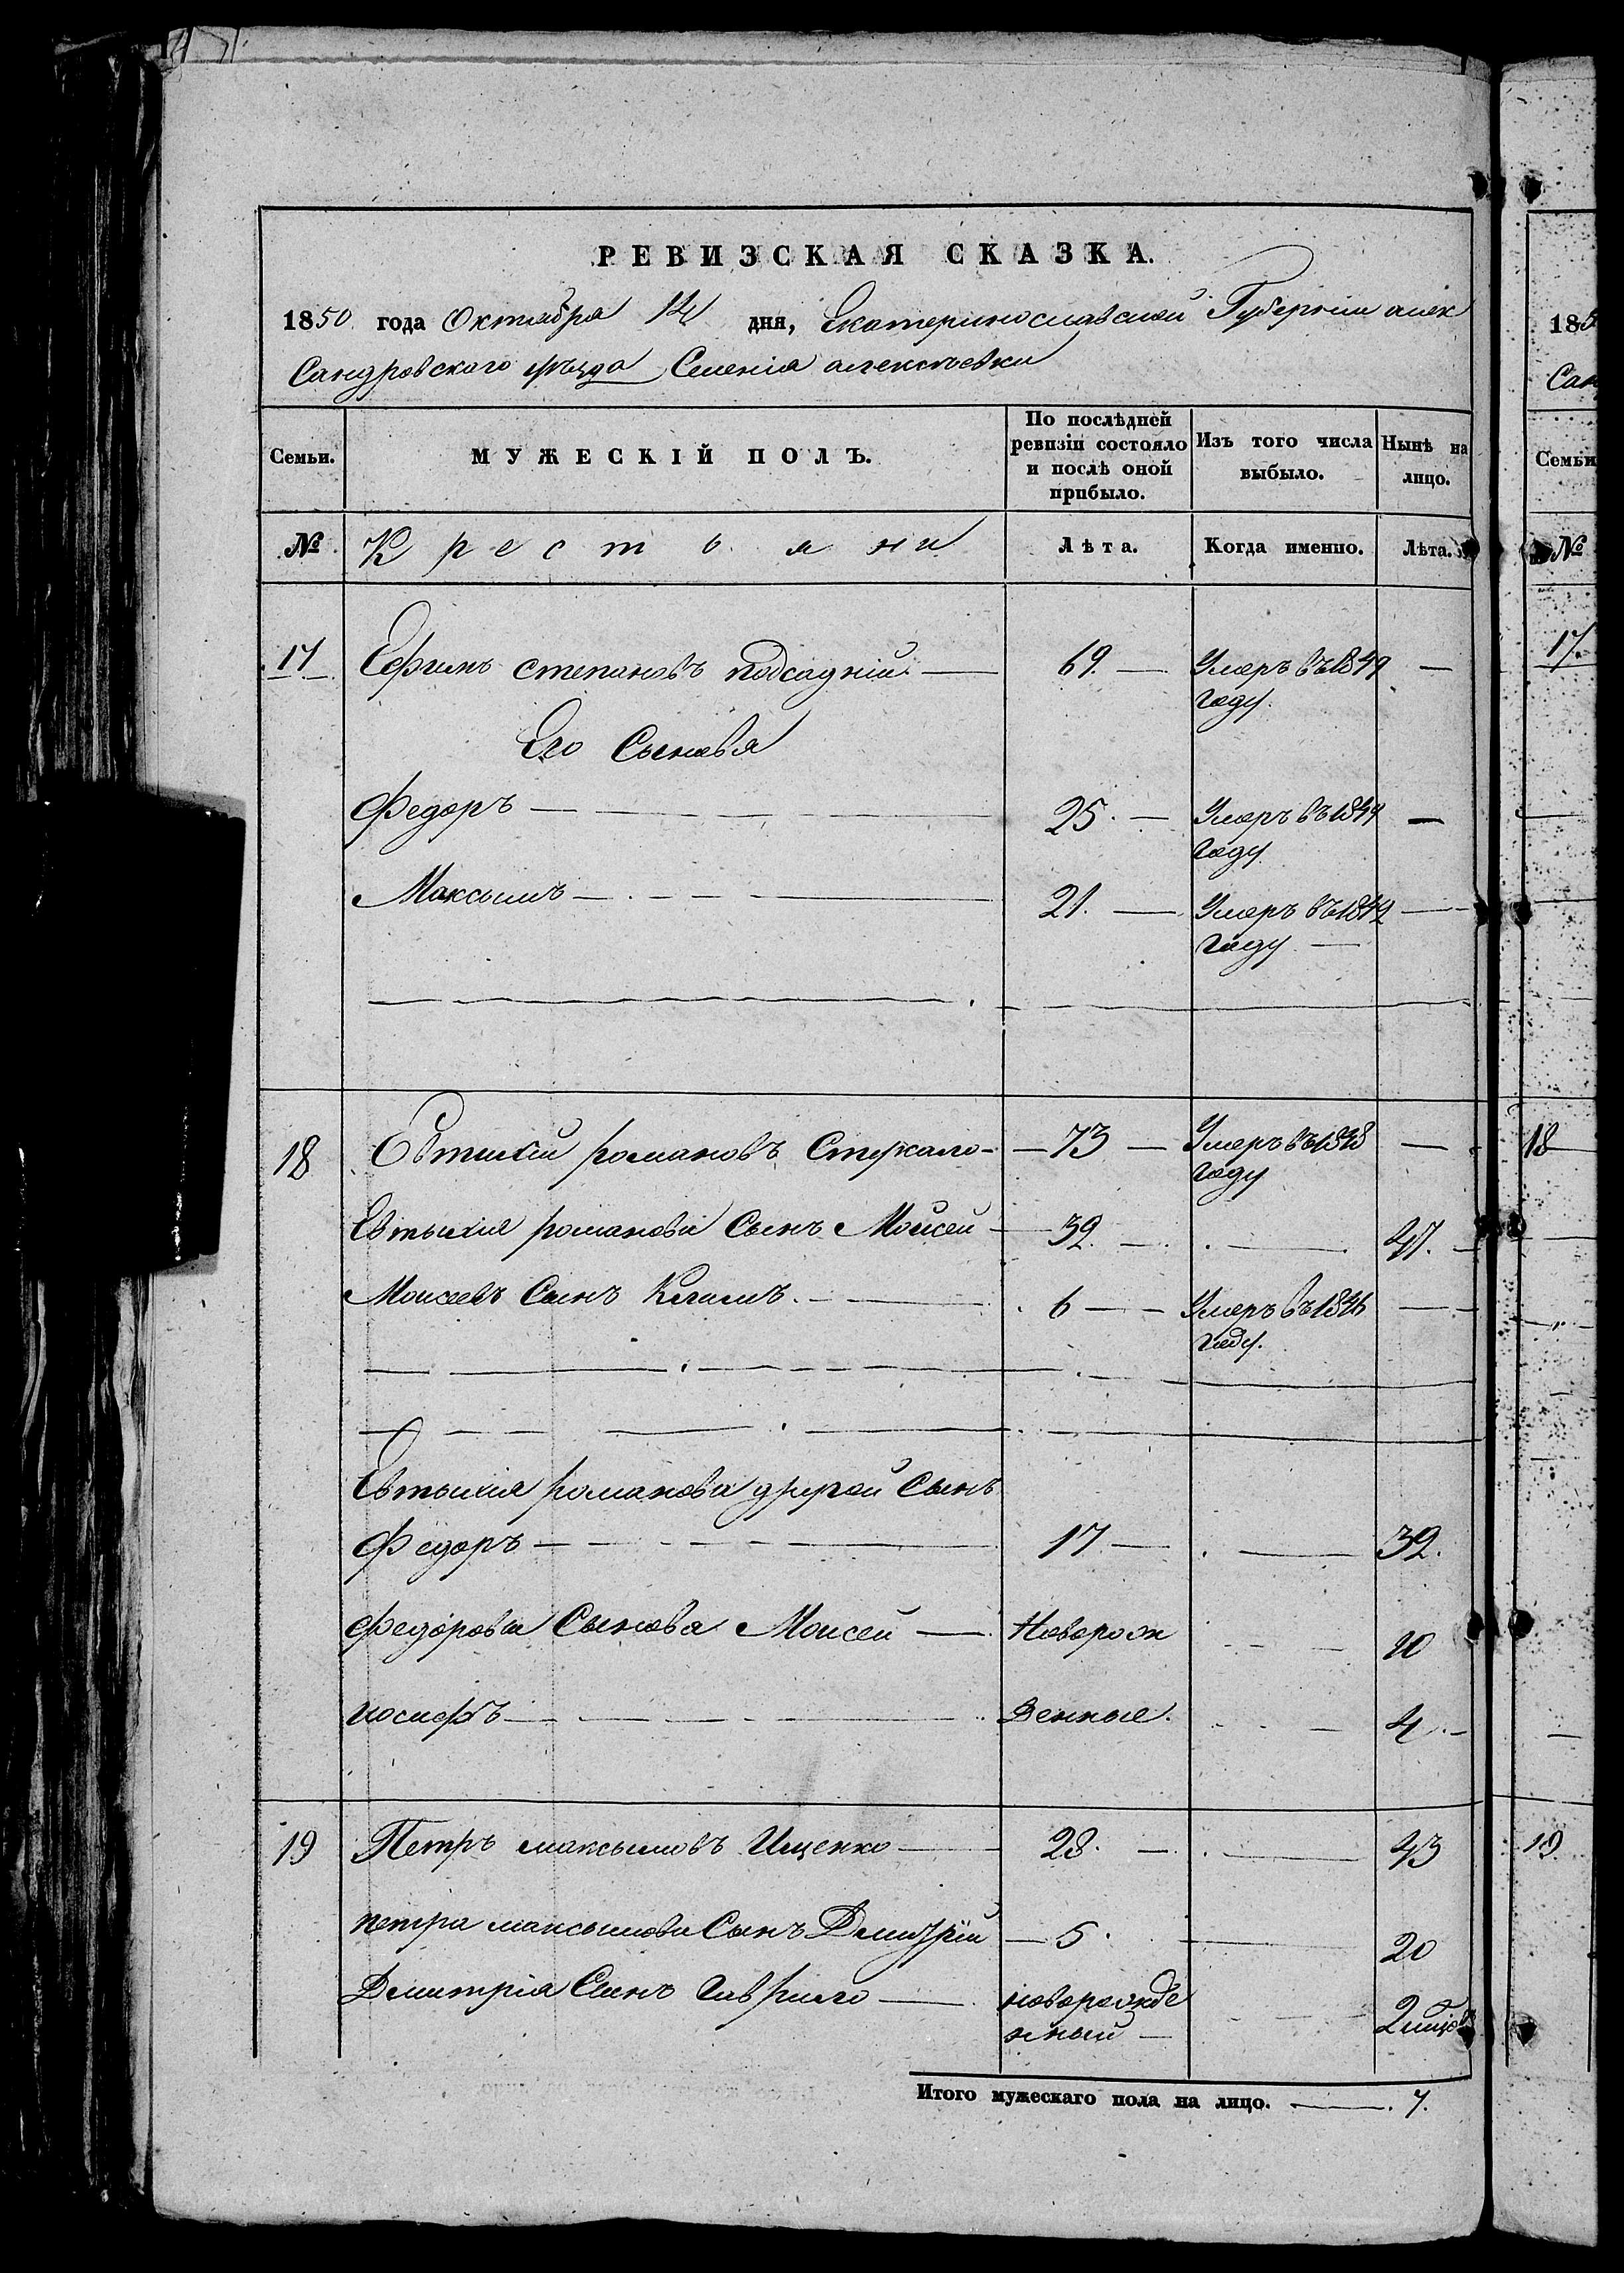 РЕВИЗСКАЯ СКАЗКА.
1850 года Октября 14 дня, Екатеринославской Губерніи алек
Сандровского уѣзда Селенія алексѣевки
Семьи.
МУЖЕСКІЙ ПОЛЪ.
По послѣдней ревизіи состояло и послѣ оной прибыло.
Изъ того числа выбыло.
Нынѣ на лицо.
№ Крестьяни Лѣта. Когда именно. Лѣта.
17 Ефимъ степановъ подсадній — 69. — Умеръ въ 1849 —
году.
Его Сыновья
Федоръ — 25. — Умеръ въ 1844 —
году
Максымъ — 21. — Умеръ въ 1842 —
году —
18 Евтихій романовъ Стукало — 73 — Умеръ въ 1848 —
году
Евтыхия романова Сынъ Моисей — 32. — 47. —
Моисеевъ Сынъ Климъ. — 6 — Умеръ въ 1846 —
году.
Евтыхия романова другой Сынъ
Федоръ — 17 — 32.
Федорова Сынова Моисей — Новорож — 10
иосифъ — денные. — 4. —
19 Петръ максымовъ Ищенко — 28. — 43
петра максымова Сынъ Дмитрій — 5. — 20
Дмитрія Сынъ Гаврило — новорожде — 2
нный —
Итого мужескаго пола на лицо. — 7.
185
Сан
Семьи
№
17.
18
19